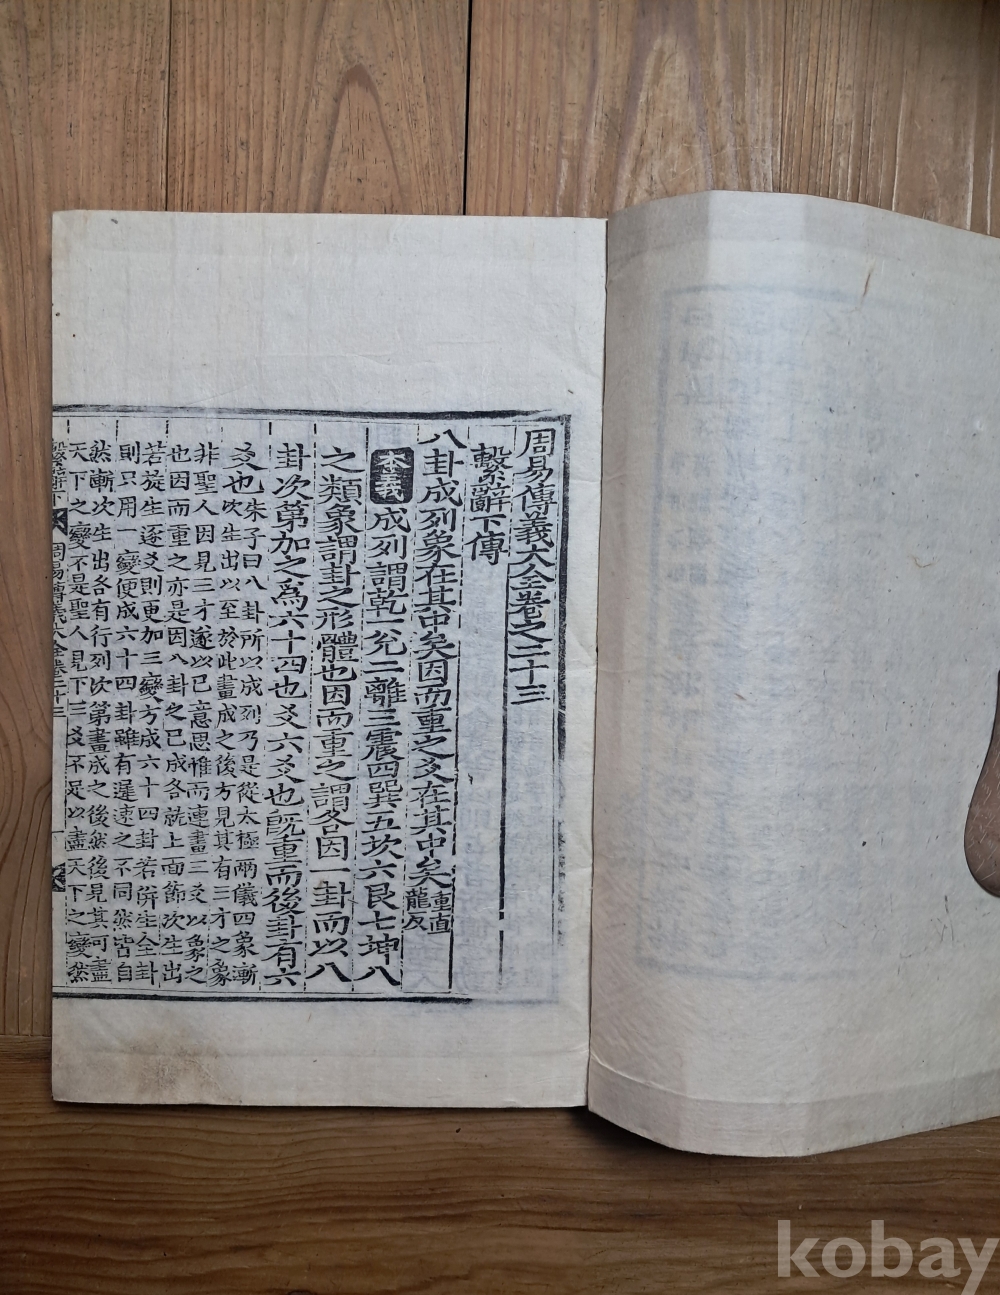 周易傳義大全卷之二十三
繫辭下傳
八卦成列象在其中矣因而重之爻在其中矣重直
龍反
本義 成列謂乾一兌二離三震四巽五坎六艮七坤八
之類象謂卦之形體也因而重之謂各因一卦而以八
卦次第加之爲六十四也爻六爻也旣重而後卦有六
爻也朱子曰八卦所以成列乃是從太極兩儀四象漸
次生出以至於此畫成之後方見其有三才之象
非聖人因見三才遂以己意思惟而連畫三爻以象之
也因而重之亦是因八卦之已成各就上面節次生出
若旋生逐爻則更加三變方成六十四卦若倂生全卦
則只用一變便成六十四卦雖有遲速之不同然皆自
然漸次生出各有行列次第畫成之後然後見其可盡
天下之變不是聖人見下三爻不足以盡天下之變然
繫辭下 周易傳義大全卷二十三 一
kobay